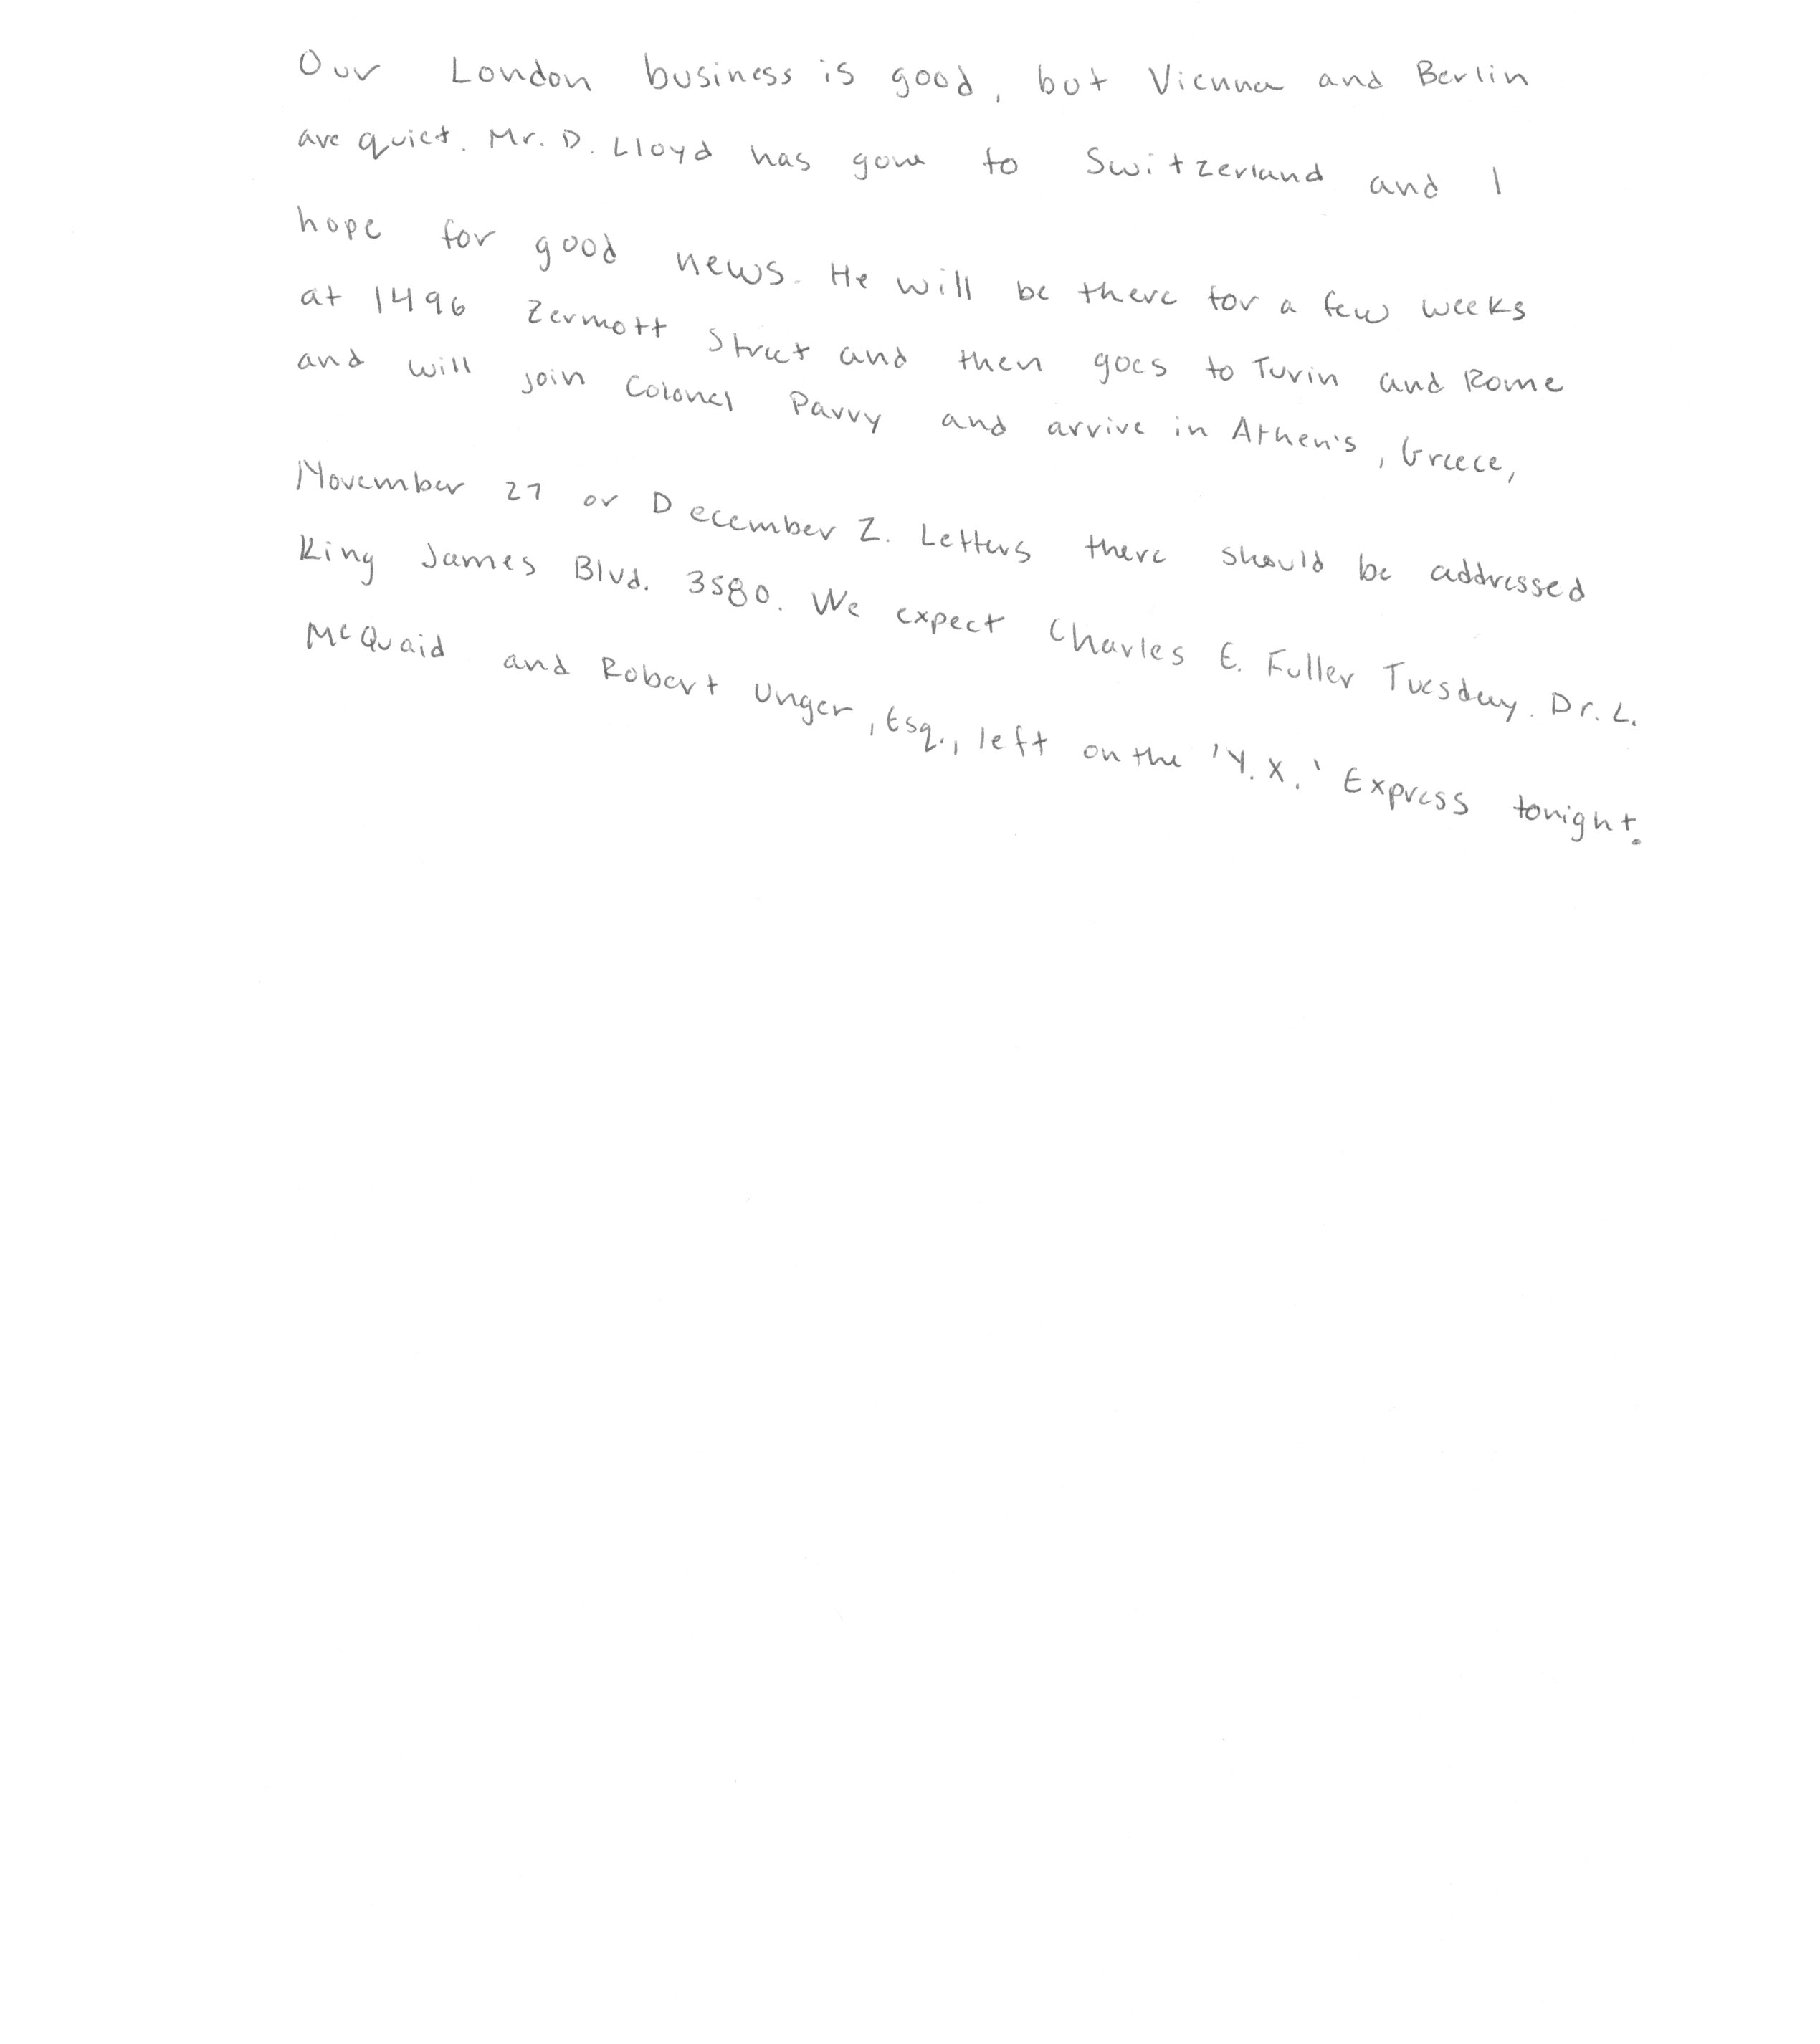 Our London business is good, but Vienna and Berlin
are quiet. Mr. D. Lloyd has gone to Switzerland and I
hope for good news. He will be there for a few weeks
at 1496 Zermott Street and then goes to Turin and Rome
and will join Colonel Parry and arrive in Athen's, Greece,
November 27 or December 2. Letters there should be addressed
King James Blvd. 3580. We expect Charles E. Fuller Tuesday. Dr. L.
McQuaid and Robert Unger, Esq., left on the 'Y.X.' Express tonight.